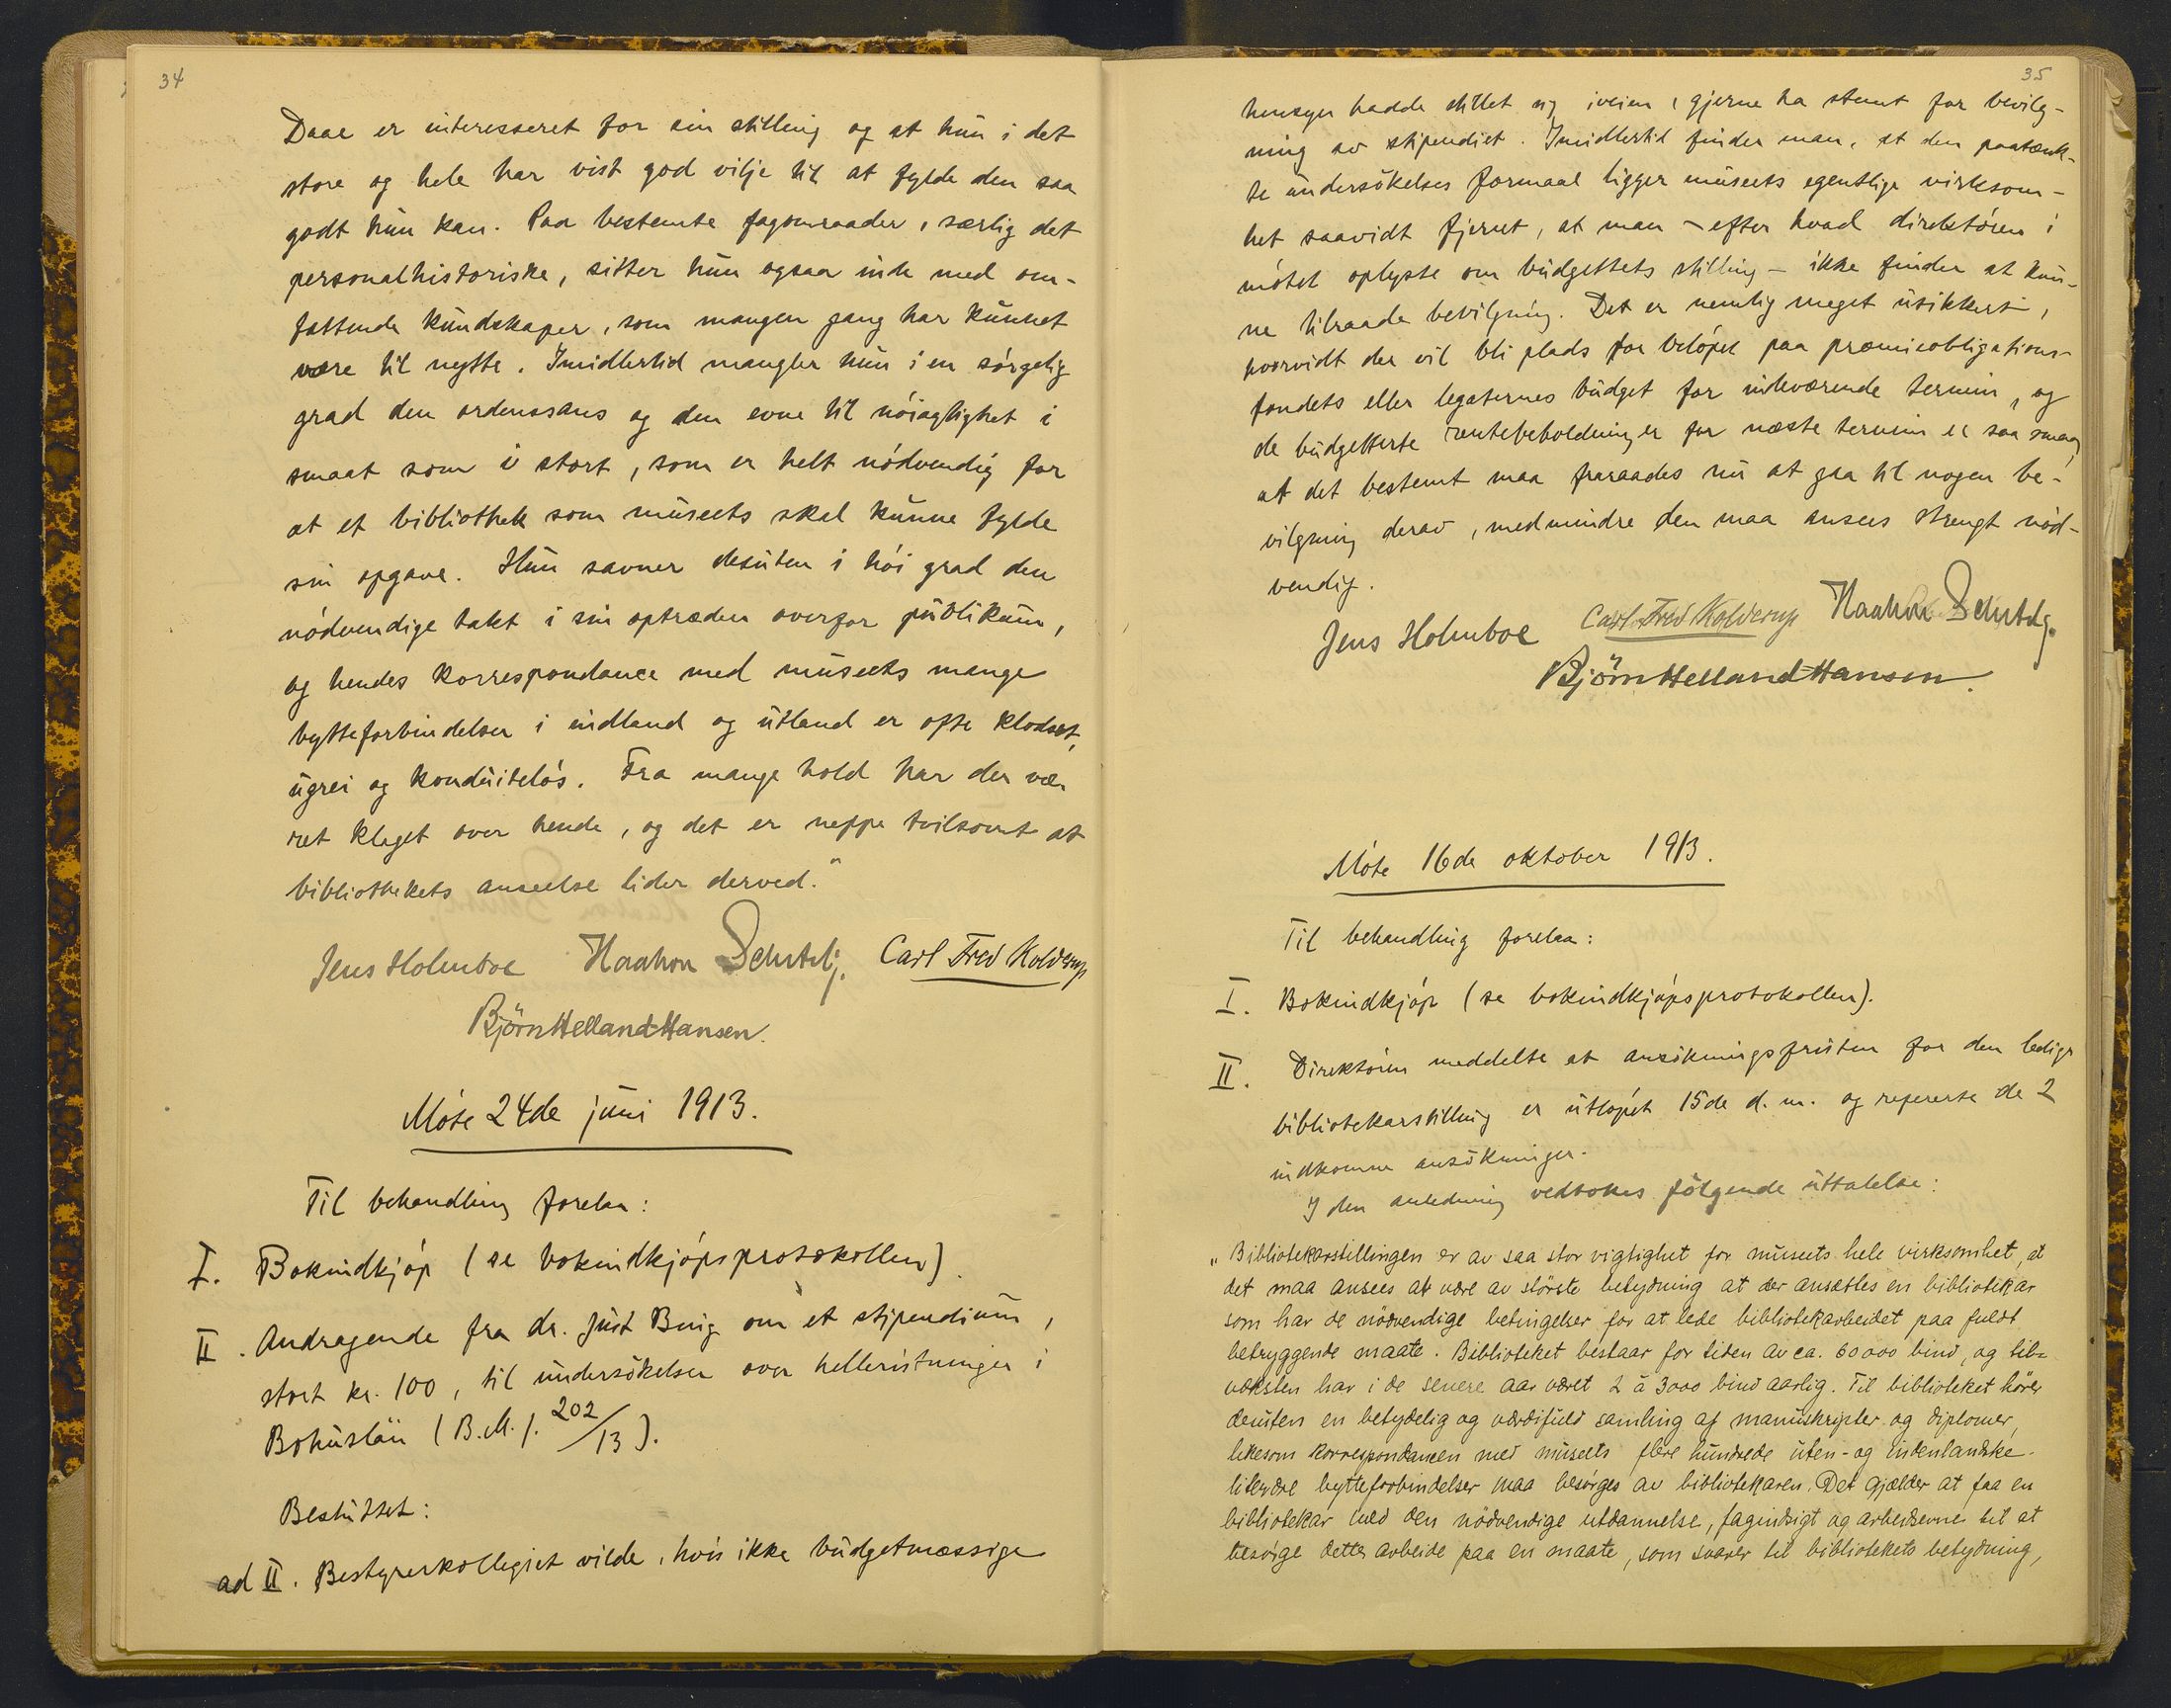 34
Daae er interesseret for sin stilling og at hun i det
store og hele har vist god vilje til at fylde den saa
godt hun kan. Paa bestemte fagomraader, særlig det
personalhistoriske, sitter hun ogsaa inde med om-
fattende kundskaper, som mangen gang har kunnet
være til nytte. Imidlertid mangler hun i en sórgelig
grad den ordenssans og den evne til nóiagtighet i
smaat som i stort, som er helt nódvendig for
at et bibliothek som museets skal kunne fylde
sin opgave. Hun savner desuten i hói grad den
nódvendige takt i sin optræden overfor publikum,
og hendes korrespondance med museets mange
bytteforbindelser i indland og utland er ofte klodset,
ugrei og konduiteløs. Fra mange hold har der væ-
ret klaget over hende, og det er neppe tvilsomt at
bibliothekets anseelse lider derved."
Jens Holmboe Haakon Schetelig. Carl Fred Kolderup
Björn Helland-Hansen.
Móte 24de juni 1913.
Til behandling forelaa:
I. Bokindkjóp (se bokindkjópsprotokollen).
II. Andragende fra dr. Just Bing om et stipendium,
stort kr. 100, til undersökelser over helleristninger i
Bohuslän (B.M.j. 202/13).
Besluttet:
ad II. Bestyrerkollegiet vilde, hvis ikke budgetmæssige
35
hensyn hadde stillet sig iveien, gjerne ha stemt for bevilg-
ning av stipendiet. Imidlertid finder man, at den paatænk-
te undersökelses formaal ligger museets egentlige virksom-
het saavidt fjernt, at man – efter hvad direktóren i
mótet oplyste om budgettets stilling – ikke finder at kun-
ne tilraade bevilgning. Det er nemlig meget usikkert,
hvorvidt der vil bli plads for belópet paa præmieobligations-
fondets eller legaternes budget for indeværende termin, og
de budgetterte rentebeholdninger for næste termin er saa smaa,
at det bestemt maa fraraades nu at gaa til nogen be-
vilgning derav, medmindre den maa ansees strengt nód-
vendig.
Jens Holmboe Carl Fred Kolderup Haakon Schetelig.
Björn Helland-Hansen.
Móte 16de oktober 1913.
Til behandling forelaa:
I. Bokindkjóp (se bokindkjópsprotokollen).
II. Direktóren meddelte at ansökningsfristen for den ledige
bibliotekarstilling er utlópet 15de d.m. og refererte de 2
indkomne ansökninger.
I den anledning vedtokes fölgende uttalelse:
„Bibliotekarstillingen er av saa stor vigtighet for museets hele virksomhet, at
det maa ansees at være av störste betydning at der ansættes en bibliotekar
som har de nödvendige betingelser for at lede bibliotekarbeidet paa fuldt
betryggende maate. Biblioteket bestaar for tiden av ca. 60000 bind, og til-
væksten har i de senere aar været 2 à 3000 bind aarlig. Til biblioteket hörer
desuten en betydelig og værdifuld samling af manuskripter og diplomer,
likesom korrespondancen med museets flere hundrede uten- og indenlandske
literære bytteforbindelser maa besörges av bibliotekaren. Det gjælder at faa en
bibliotekar med den nödvendige utdannelse, fagindsigt og arbeidsevne til at
besörge dette arbeide paa en maate, som svarer til bibliotekets betydning,